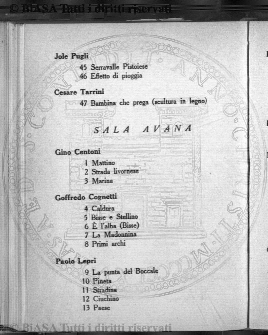 © BIASA Tutti i diritti riservati
Jole Pugli
45 Serravalle Pistoiese
46 Effetto di pioggia
Cesare Tarrini
47 Bambina che prega (scultura in legno)
SALA AVANA
Gino Centoni
1 Mattino
2 Strada livornese
3 Marina
Goffredo Cognetti
4 Caldura
5 Bisse e Stellino
6 È l'alba (Bisse)
7 La Madonnina
8 Primi archi
Paolo Lepri
9 La punta del Boccale
10 Pineta
11 Stradina
12 Ciuchino
13 Paese
© BIASA Tutti i diritti riservati